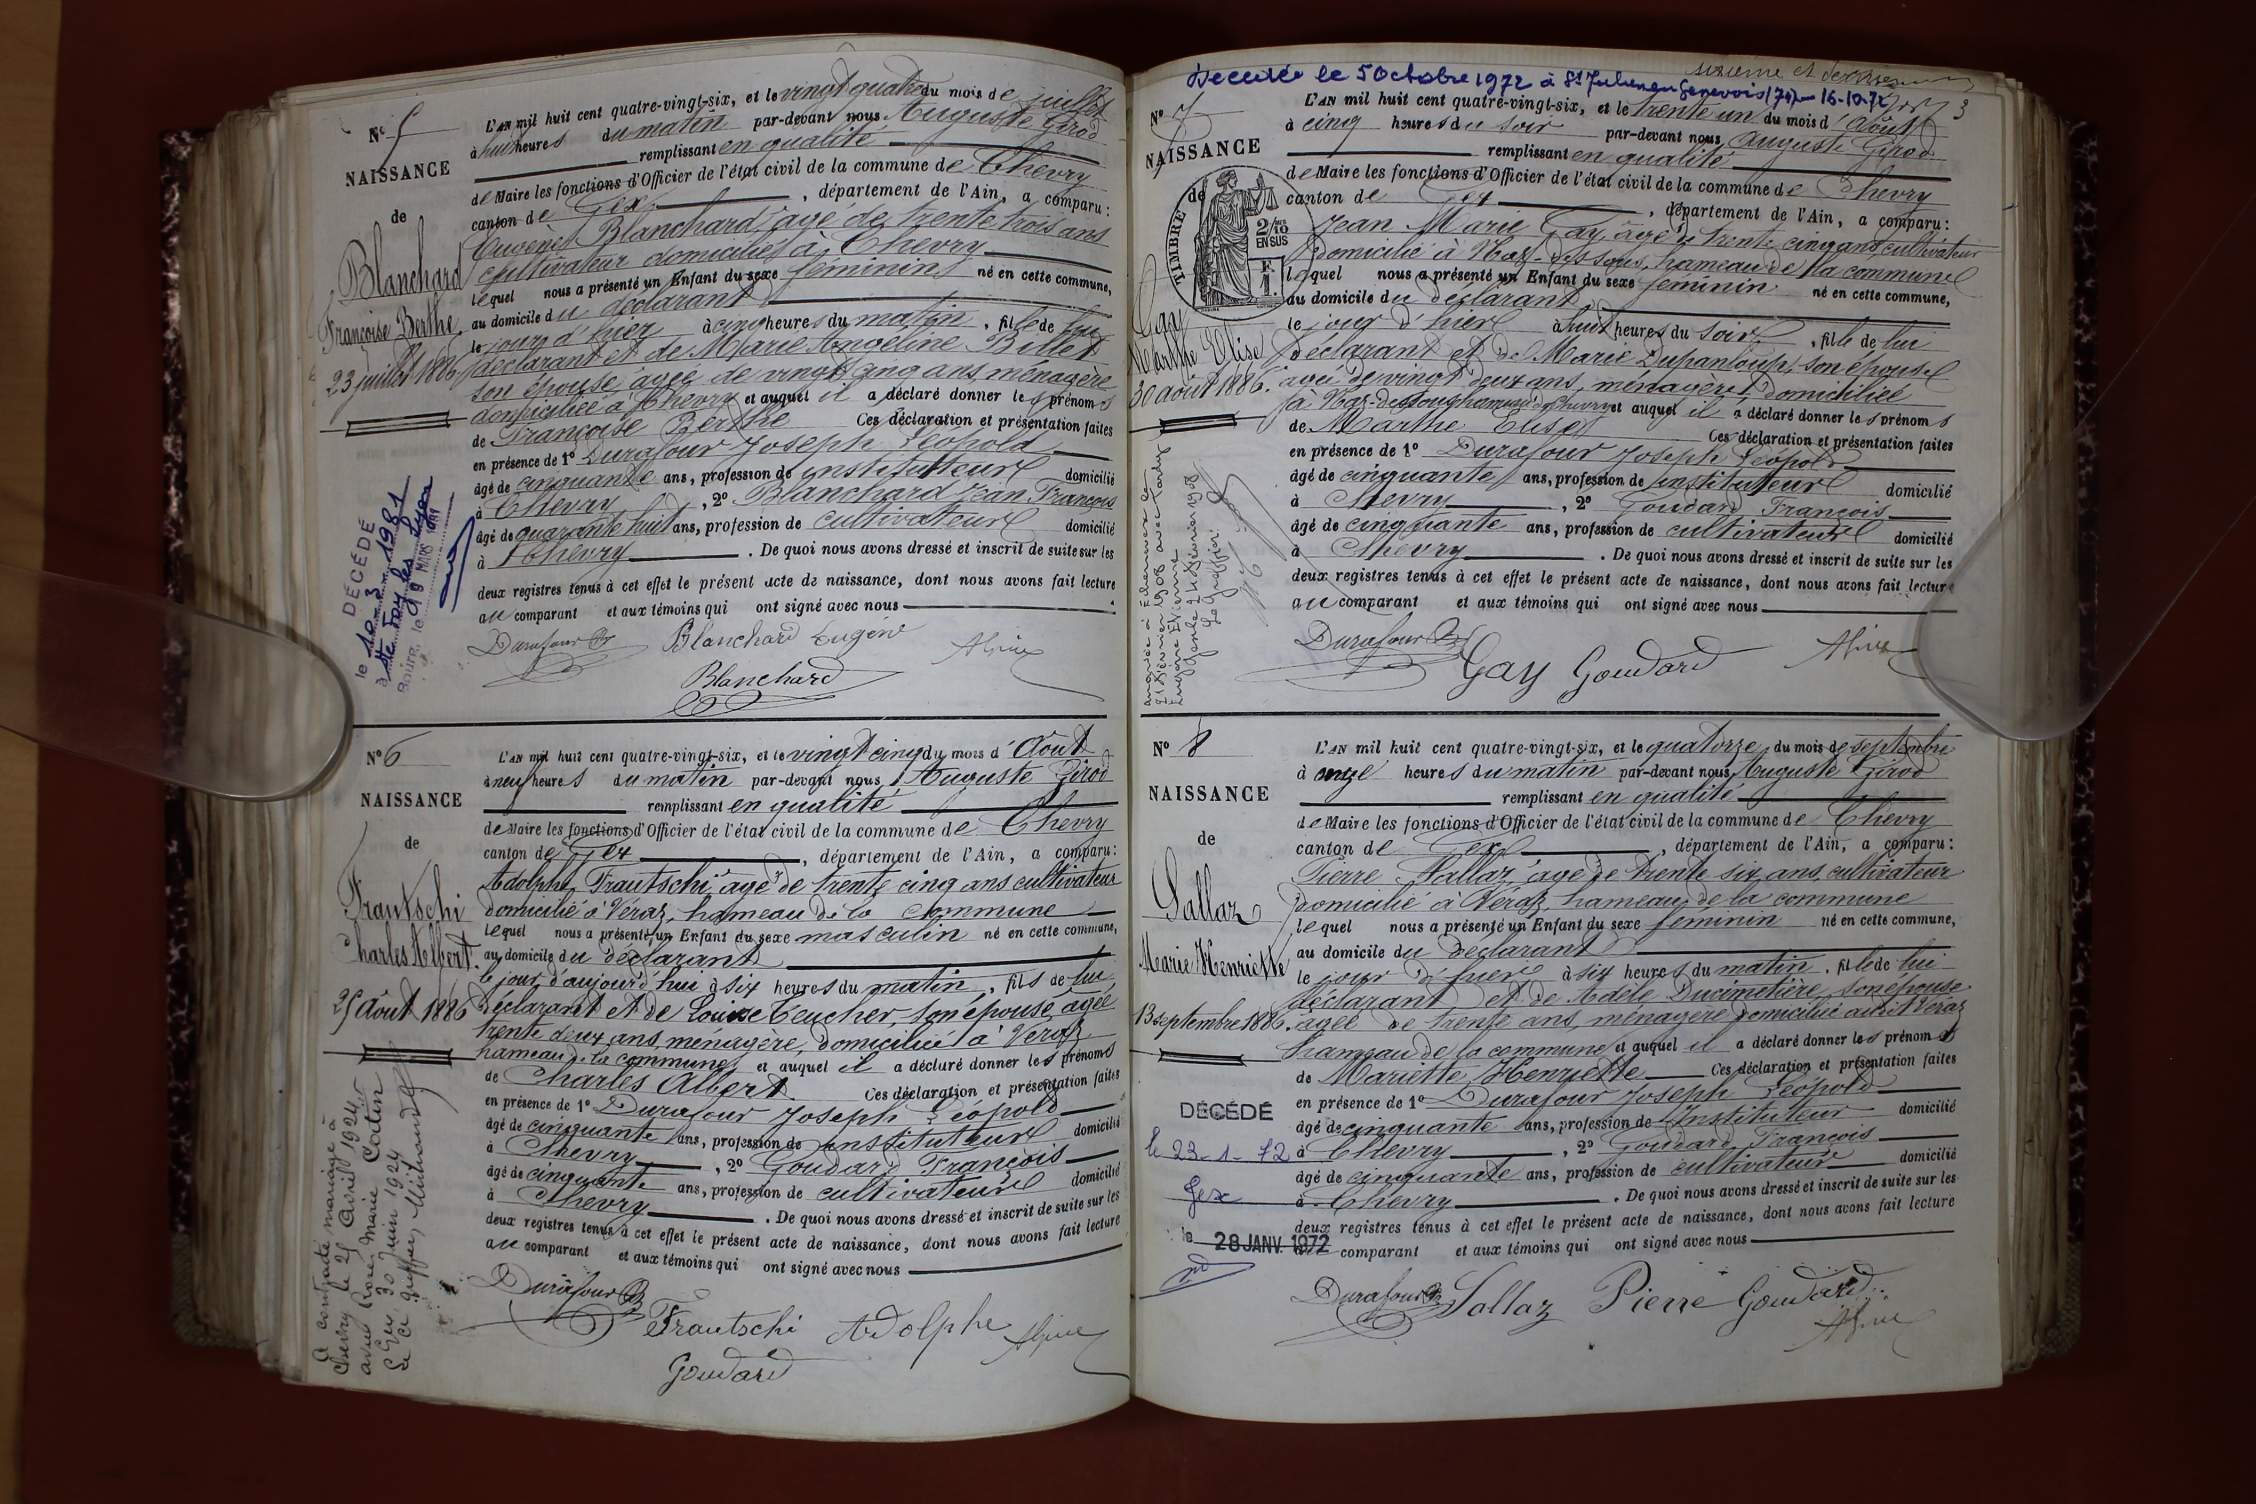 N° 5
NAISSANCE
de
Blanchard
Françoise Berthe
23 juillet 1886
DÉCÉDÉ
le 10 3 1981
à Ste Foy les Lyon
le 19 MARS 1981
L'AN mil huit cent quatre-vingt-six, et le vingt quatre du mois de juillet
à huit heures du matin par-devant nous Auguste Girod
remplissant en qualité
de Maire les fonctions d'Officier de l'état civil de la commune de Chevry
canton de Gex, département de l'Ain, a comparu:
Eugène Blanchard, agé de trente trois ans
cultivateur domicilié à Chevry
lequel nous a présenté un Enfant du sexe féminin né en cette commune,
au domicile du déclarant
le jour d'hier à cinq heures du matin, fille de lui
déclarant et de Marie Angéline Billet
son épouse agée de vingt cinq ans, ménagère
domiciliée à Chevry et auquel il a déclaré donner les prénoms
de Françoise Berthe Ces déclaration et présentation faites
en présence de 1° Durafour Joseph Léopold
âgé de cinquante ans, profession de instituteur domicilié
à Chevry, 2° Blanchard Jean François
âgé de quarante huit ans, profession de cultivateur domicilié
à Chevry. De quoi nous avons dressé et inscrit de suite sur les
deux registres tenus à cet effet le présent acte de naissance, dont nous avons fait lecture
au comparant et aux témoins qui ont signé avec nous
Durafour Blanchard Eugène
Blanchard
N° 6
NAISSANCE
de
Frautschi
Charles Albert.
25 Août 1886
A contracté mariage à
Chevry le 25 Avril 1924
avec Rose Marie Cottin
Gex, 30 Juin 1924
Le Greffier,
L'AN mil huit cent quatre-vingt-six, et le vingt cinq du mois d'Août
à neuf heures du matin par-devant nous Auguste Girod
remplissant en qualité
de Maire les fonctions d'Officier de l'état civil de la commune de Chevry
canton de Gex, département de l'Ain, a comparu:
Adolphe Frautschi agé de trente cinq ans cultivateur
domicilié à Véraz, hameau de la commune
lequel nous a présenté un Enfant du sexe masculin né en cette commune,
au domicile du déclarant
le jour d'aujourd'hui à six heures du matin, fils de lui
déclarant et de Louise Teucher, son épouse, agée
trente deux ans, ménagère, domiciliée à Véraz
hameau de la commune et auquel il a déclaré donner les prénoms
de Charles Albert Ces déclaration et présentation faites
en présence de 1° Durafour Joseph Léopold
âgé de cinquante ans, profession de instituteur domicilié
à Chevry, 2° Goudard François
âgé de cinquante ans, profession de cultivateur domicilié
à Chevry. De quoi nous avons dressé et inscrit de suite sur les
deux registres tenus à cet effet le présent acte de naissance, dont nous avons fait lecture
au comparant et aux témoins qui ont signé avec nous
Durafour Frautschi Adolphe
Goudard
Décédée le 5 Octobre 1972 à St Julien en Genevois (74) - 16-10-72
sixième et dernier
3
N° 7
NAISSANCE
de
TIMBRE
2/10
EN SUS
Gay
Marthe Elise
30 août 1886.
mariée à
21 Février 1908 avec
Etienne
24 Février 1908
Le Greffier
L'AN mil huit cent quatre-vingt-six, et le trente un du mois d'Août
à cinq heures du soir par-devant nous Auguste Girod
remplissant en qualité
de Maire les fonctions d'Officier de l'état civil de la commune de Chevry
canton de Gex, département de l'Ain, a comparu:
Jean Marie Gay, agé de trente cinq ans, cultivateur
domicilié à Naz-dessous, hameau de la commune
lequel nous a présenté un Enfant du sexe féminin né en cette commune,
au domicile du déclarant
le jour d'hier à huit heures du soir, fille de lui
déclarant et de Marie Dupanloup, son épouse
agée de vingt deux ans, ménagère, domiciliée
à Naz-dessous hameau de Chevry et auquel il a déclaré donner les prénoms
de Marthe Elise Ces déclaration et présentation faites
en présence de 1° Durafour Joseph Léopold
âgé de cinquante ans, profession de instituteur domicilié
à Chevry, 2° Goudard François
âgé de cinquante ans, profession de cultivateur domicilié
à Chevry. De quoi nous avons dressé et inscrit de suite sur les
deux registres tenus à cet effet le présent acte de naissance, dont nous avons fait lecture
au comparant et aux témoins qui ont signé avec nous
Durafour Gay Goudard
N° 8
NAISSANCE
de
Sallaz
Marie Henriette
13 septembre 1886.
DÉCÉDÉ
le 23-1-72
Gex
le 28 JANV. 1972
L'AN mil huit cent quatre-vingt-six, et le quatorze du mois de septembre
à onze heures du matin par-devant nous Auguste Girod
remplissant en qualité
de Maire les fonctions d'Officier de l'état civil de la commune de Chevry
canton de Gex, département de l'Ain, a comparu:
Pierre Sallaz, agé de trente six ans, cultivateur
domicilié à Véraz, hameau de la commune
lequel nous a présenté un Enfant du sexe féminin né en cette commune,
au domicile du déclarant
le jour d'hier à six heures du matin, fille de lui
déclarant et de Adèle Ducimetière, son épouse
agée de trente ans, ménagère domiciliée audit Véraz
hameau de la commune et auquel il a déclaré donner les prénoms
de Mariette Henriette Ces déclaration et présentation faites
en présence de 1° Durafour Joseph Léopold
âgé de cinquante ans, profession de Instituteur domicilié
à Chevry, 2° Goudard François
âgé de cinquante ans, profession de cultivateur domicilié
à Chevry. De quoi nous avons dressé et inscrit de suite sur les
deux registres tenus à cet effet le présent acte de naissance, dont nous avons fait lecture
comparant et aux témoins qui ont signé avec nous
Durafour Sallaz Pierre Goudard